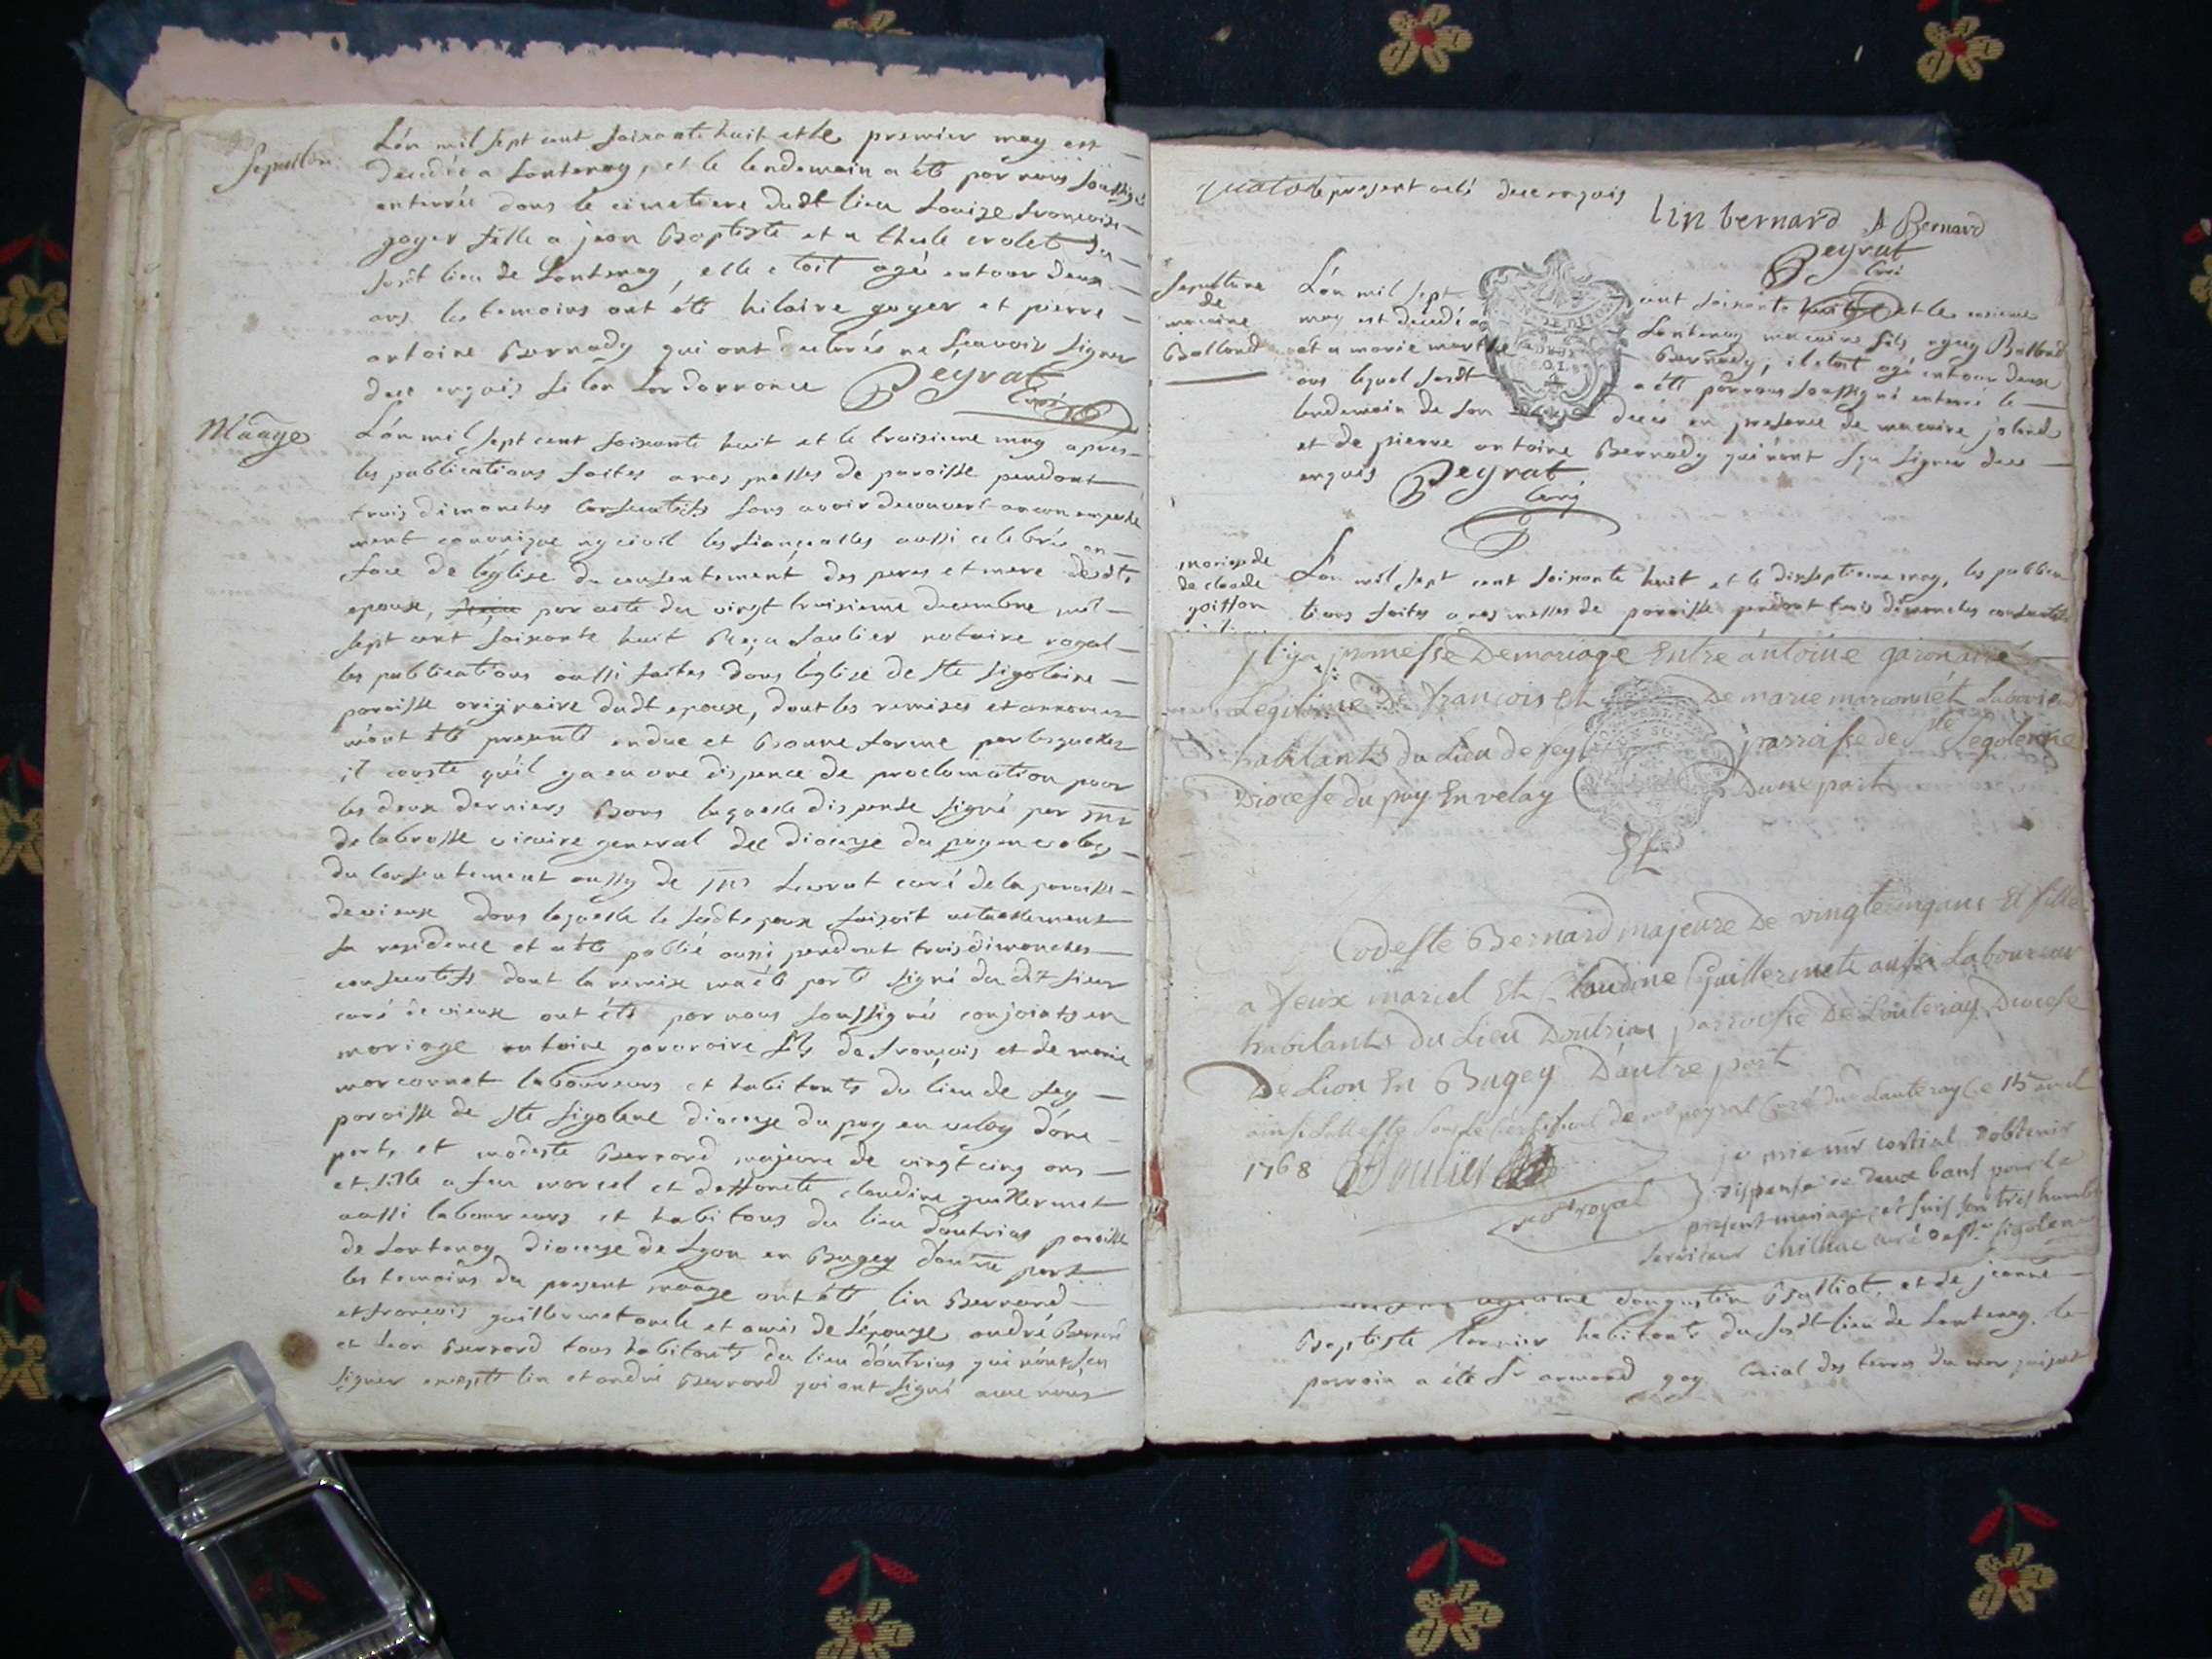 Sepulture
L'én mil sept cent soixante huit et le premier may est
decedée a Lantenay, et le lendemain a été par nous soussigné
enterrée dans le cimetiere dudt lieu Louise françoise
goyer fille a jean Baptiste et a
susdt lieu de Lantenay, elle etoit agé entour deux
ans les temoins ont été hilaire goyer et pierre
antoine Bernady qui ont declarés ne sçavoir signer
dece enquis selon lordonnance Peyrat
Curé
Mâage
L'én mil sept cent soixante huit et le troisieme may apres
les publications faites a nos messes de paroisse pendant
trois dimanches consecutifs sans avoir decouvert aucun empeche
ment canonique ny civil les fiançailles aussi celebrés en
face de léglise du consentement des peres et mere desdts
epoux, par acte du vingt troisieme decembre mil
sept cent soixante huit Reçu Saulier notaire royal
les publications aussi faites dans léglise de Ste sigolaine
paroisse originaire dudt epoux, dont les remises et annonces
m'ont été presenté en due et Bonne forme par lesquelles
il conste qu'il y a eu une dispence de proclamation pour
les deux derniers Bans laquelle dispense signé par mr
de labrosse vicaire general du diocezze du puy en velay
du consentement aussy de mr curé de la paroisse
de vieux dans laquelle le susdt epoux faisoit actuellement
sa residence et a été publié aussi pendant trois dimanches
consecutifs dont la remise m'a été porté signé du dit sieur
curé de vieux ont été par nous soussignés conjoints en
mariage antoine garonaire fils de françois et de marie
marconnet laboureurs et habitants du lieu de sey
paroisse de Ste sigolene diocezze du puy en velay d'une
part, et modeste Bernard majeure de vingt cinq ans
et fille a feu marcel et deffuncte claudine guillermet
aussi laboureurs et habitans du lieu doutrias paroisse
de Lantenay diocezze de Lyon en Bugey dautre part
les temoins du present mâage ont été lin Bernard
et françois guillermet oncle et amis de lépouze andré Bernard
et leon Bernard tous habitants du lieu doutrias qui n'ont sçu
signer excepté lin et andré Bernard qui ont signé avec nous
le present acte dece enquis
lin bernard A Bernard
Peyrat
Curé
Sepulture
de
macaire
Balland
L'én mil sept cent soixante huit et le onzieme
may est decedé a Lantenay macaire fils a guy Balland
et a marie marthe Bernady, il etoit agé entour deux
ans lequel susdt a été par nous soussigné enterré le
lendemain de son decés en presence de macaire
et de pierre antoine Bernady qui n'ont sçu signer dece
enquis Peyrat
Curé
mariage de
de claude
goiffon
L'én mil sept cent soixante huit et le dixseptieme may, les publica
tions faites a nos messes de paroisse pendant trois dimanches consecutifs
Il y a promesse De mariage Entre antoine garonaire
Legitime De françois Et De marie marconnét Laboureurs
habitants du Lieu de sey parroisse de Ste Segoleine
Diocese du puy En velay Dune part
Et
modeste Bernard majeure De vingt cinq ans Et fille
a feux marcel Et Claudine Guillermete aussi Laboureur
habitants du Lieu Doutrias parroisse De Lantenay Diocese
De Lion En Bugey D'autre part
ainsi L'atteste de mr peyrat Curé du Lantenay Ce 15 avril
1768 Saulier
nore royal
je prie mr cortial d'obtenir
dispense de deux bans pour le
present mariage et suis son tres humble
serviteur chilhac curé de Ste Sigolene
daugustin Balliot, et de jeanne
Baptiste habitants du susdt lieu de Lantenay. le
parrain a été Sr armand guy des terres du marquisat